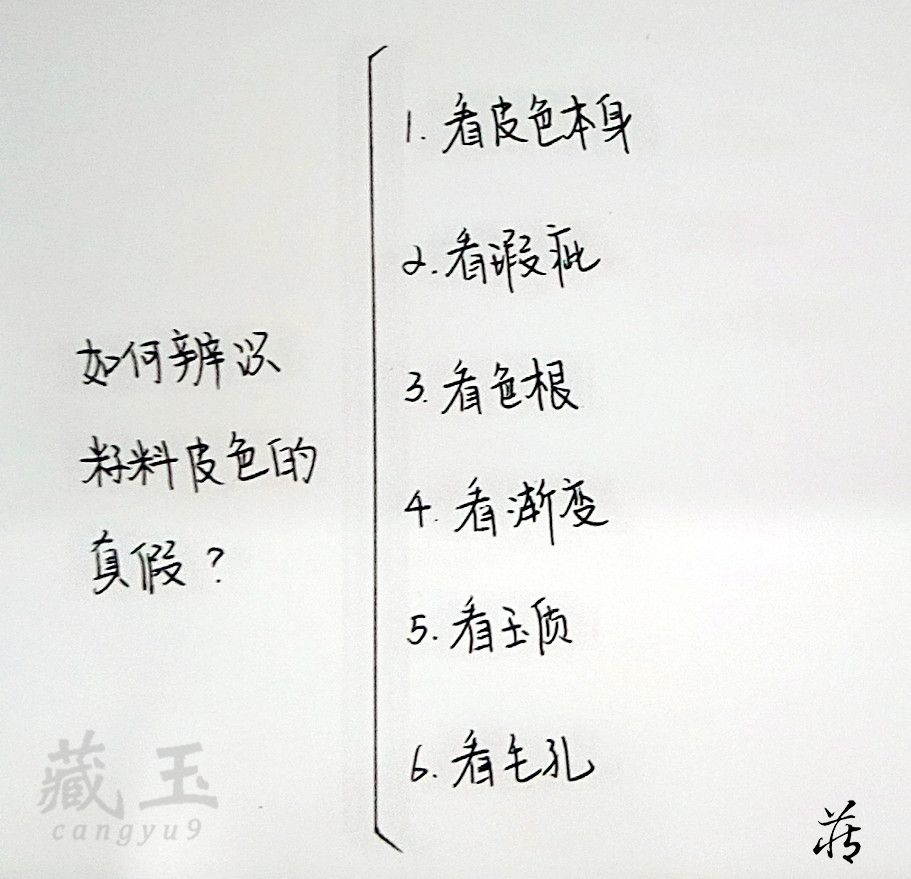 如何辨识
籽料皮色的
真假？
1. 看皮色本身
2. 看瑕疵
3. 看色根
4. 看渐变
5. 看玉质
6. 看毛孔
藏玉
cangyu9